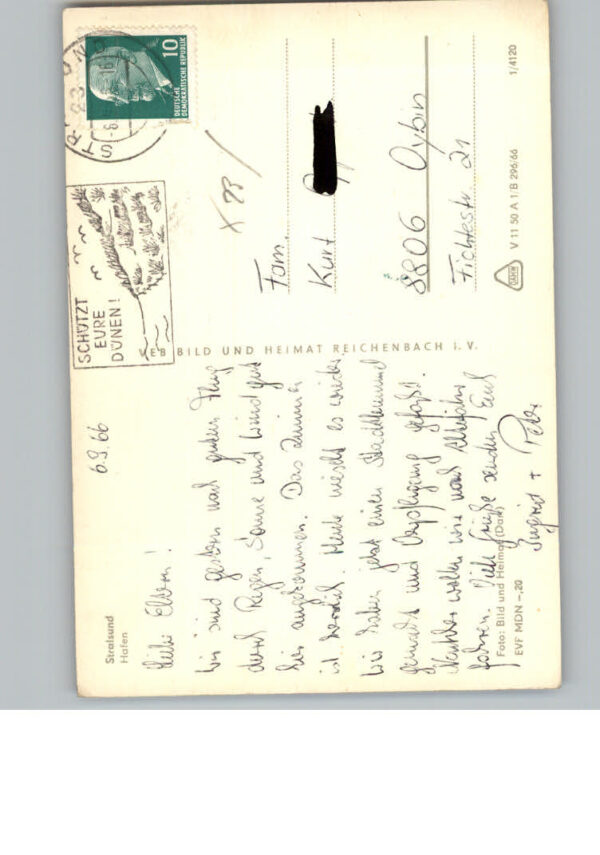 Stralsund
Hafen
6.9.66
Liebe Eltern!
Wir sind gestern nach gutem Flug
durch Regen, Sonne und Wind gut
hier angekommen. Das Zimmer
ist herrlich. Heute nieselt es wieder.
Wir haben jetzt einen Stadtbummel
gemacht und Verpflegung gefaßt.
Nachher wollen wir nach
fahren. Viele Grüße senden Euch
Ingrid + Peter
Foto: Bild und Heimat (Dark)
EVF MDN -,20
VEB BILD UND HEIMAT REICHENBACH I. V.
SCHÜTZT
EURE
DÜNEN!
STR
23
10
DEUTSCHE
DEMOKRATISCHE REPUBLIK
Fam.
Kurt
8806 Oybin
Fichtestr. 21
V 11 50 A 1/B 296/66
1/4120